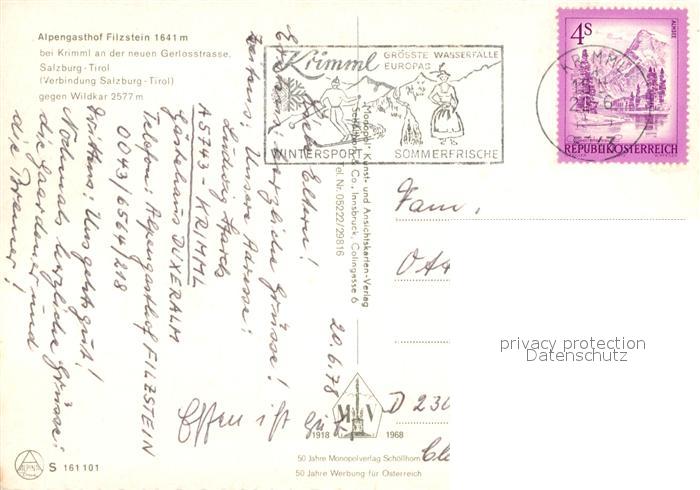 Alpengasthof Filzstein 1641 m
bei Krimml an der neuen Gerlosstrasse,
Salzburg-Tirol
(Verbindung Salzburg-Tirol)
gegen Wildkar 2577 m
Krimml
GRÖSSTE WASSERFÄLLE
EUROPAS
WINTERSPORT SOMMERFRISCHE
4S
ALMSEE
REPUBLIK ÖSTERREICH
KRIMML
Liebe Eltern!
herzliche Grüsse!
Unsere Adresse:
Ludwig
A 5743 - KRIMML
Gästehaus DUXERALM
Telefon: Alpengasthof FILZSTEIN
0043/6564/218
Uns gehts gut!
Nochmals herzliche Grüsse:
die Gaardener und
die Bremer!
20.6.78
Essen ist gut,
"Monopol" Kunst- und Ansichtskarten-Verlag
Schöllhorn & Co., Innsbruck, Colingasse 6
Tel. Nr. 05222/29816
Fam.
Ott
D 230
privacy protection
Datenschutz
M V
1918 1968
50 Jahre Monopolverlag Schöllhorn
50 Jahre Werbung für Österreich
ALPINA
S 161 101